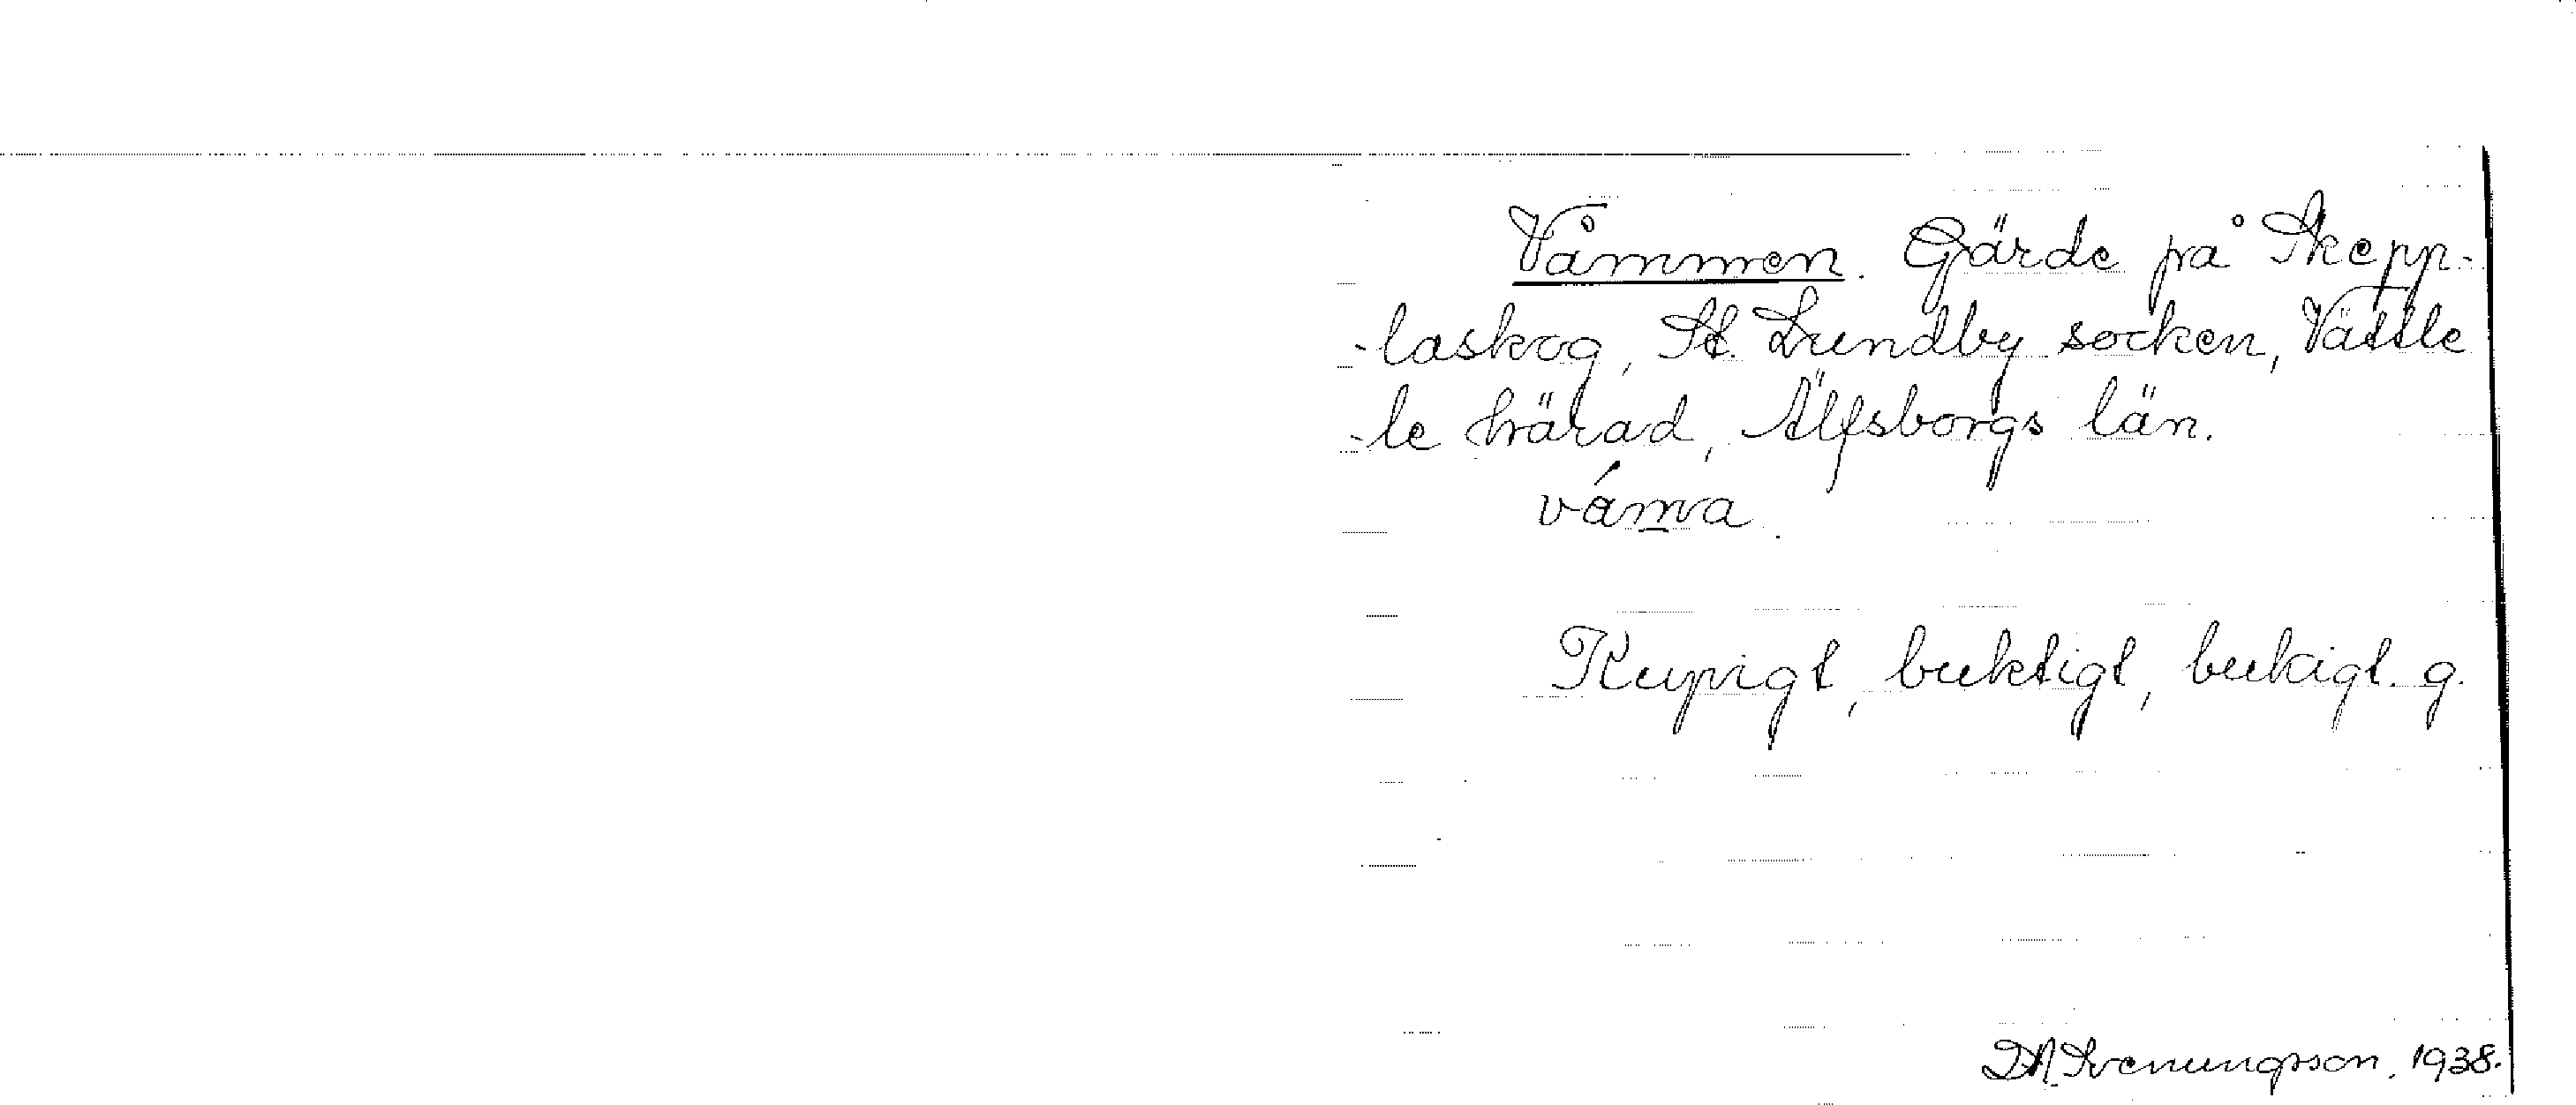 Våmmen. Gärde på Skepp-
-laskog, St. Lundby socken, Vättle
-le härad, Älfsborgs län.
våma.
Kupigt, buktigt, bukigt. g.
D.A. Svenungsson. 1938.